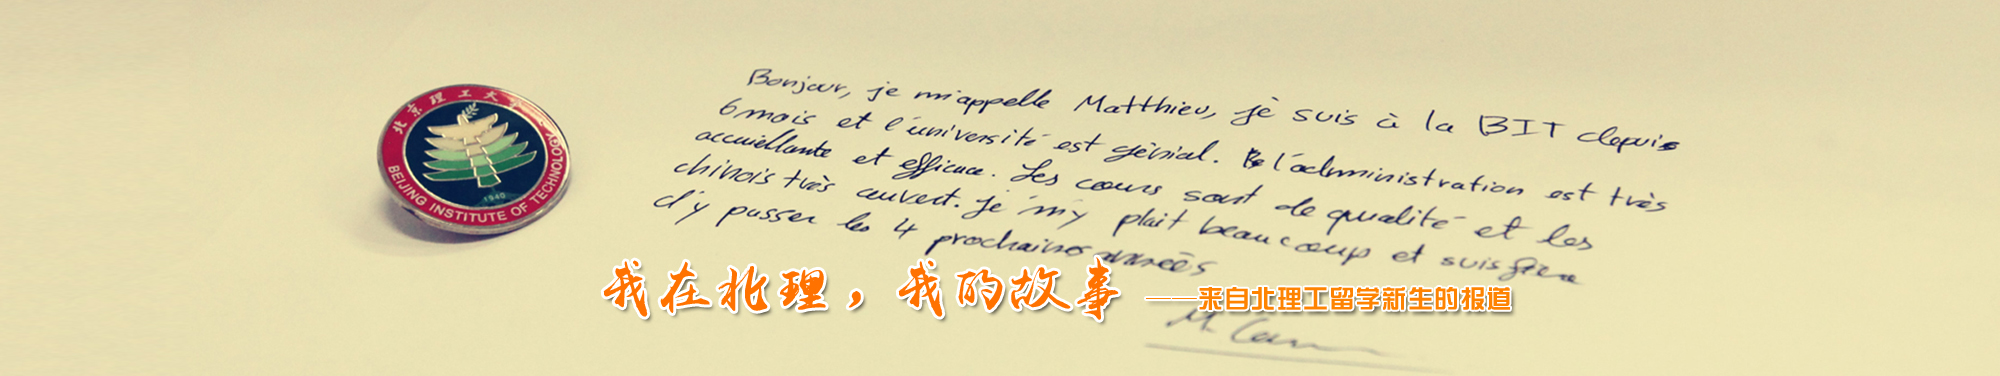 北京理工大学
BEIJING INSTITUTE OF TECHNOLOGY
1940
Bonjour, je m'appelle Matthieu, je suis à la BIT depuis
6 mois et l'université est génial. l'administration est très
accuiellante et efficace. Les cours sont de qualité et les
chinois très ouvert. je m'y plait beaucoup et suis
d'y passer les 4 prochaines années
我在北理，我的故事 ——来自北理工留学新生的报道